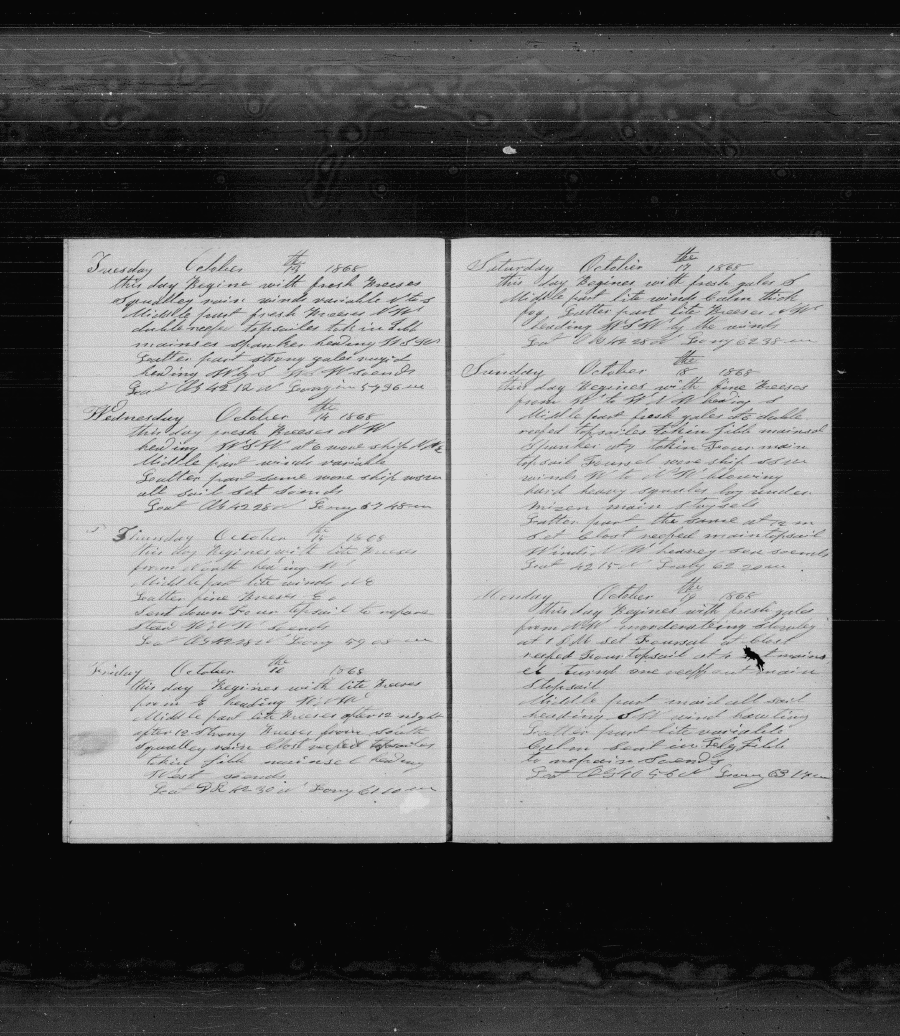 Tuesday October the 13 1868
this day Begins with fresh Breeses
Squalley rain winds variable N to S
Middle part fresh Breeses NW
double reefs topsailes tok in Jibb
mainsel spanker heading WSW
Latter part strong gales
heading W by S sounds
Lat 42 12 N Long in 57 36 W
Wednesday October the 14 1868
this day fresh Breeses NW
heading WSW at 6 wore ship NNE
Middle part winds variable
Latter part same wore ship WSW
all sail set sounds
Lat Ob 42 28 N Long 57 48 W
Thursday October the 15 1868
this day Begins with lite Breeses
from North heading W
Middle part lite winds NE
Latter fine Breeses E
Sent down Four topsail to repare
stear W sounds
Lat Ob 42 28 N Long 59 08 W
Friday October the 16 1868
this day Begines with lite Breeses
from E heading W
Middle part lite Breeses after 12 night
after 12 Strong Breeses from South
squalley rain Close reefed topsailes
takin Jibb mainsel heading
West sounds
Lat DR 42 30 N Long 61 10 W
Saturday October the 17 1868
this day Begines with fresh gales S
Middle part lite winds Calm thick
fog Latter part lite Breeses NW
heading WSW by the winds
Lat Ob 42 28 N Long 62 38 W
Sunday October the 18 1868
this day Begines with fine Breeses
from W to WNW heading S
Middle part fresh gales at 2 double
reefed topsailes takin Jibb mainsal
Spanker at 7 takin Four main
topsail Foursel wore ship SSW
winds W to NW blowing
hard heavy squales lay under
mizen main staysels
Latter part the same at
set Clost reefed maintopsail
Winds NW heavey sea sounds
Lat 42 15 N Long 62 20 W
Monday October the 19 1868
this day Begines with fresh gales
from NW moderating slowley
at 1 PM set Foursal at Clost
reefed Four topsail at 4 set mains
el turnd one reeff out main
topsail
Middle part maid all sail
heading SW wind hawling
Latter part lite variable
Calm sent in Fly Jibb
to repair sounds
Lat Ob 40 56 N Long 63 14 W